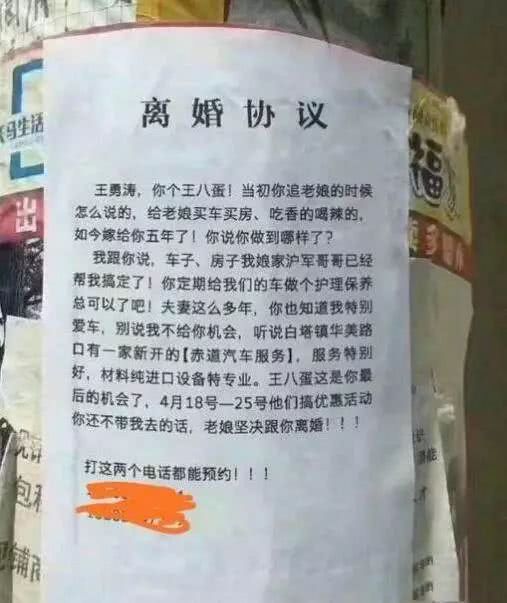 马生活
出
福
离婚协议
王勇涛，你个王八蛋！当初你追老娘的时候
怎么说的，给老娘买车买房、吃香的喝辣的，
如今嫁给你五年了！你说你做到哪样了？
我跟你说，车子、房子我娘家沪军哥哥已经
帮我搞定了！你定期给我们的车做个护理保养
总可以了吧！夫妻这么多年，你也知道我特别
爱车，别说我不给你机会，听说白塔镇华美路
口有一家新开的【赤道汽车服务】，服务特别
好，材料纯进口设备特专业。王八蛋这是你最
后的机会了，4月18号—25号他们搞优惠活动
你还不带我去的话，老娘坚决跟你离婚！！！
打这两个电话都能预约！！！